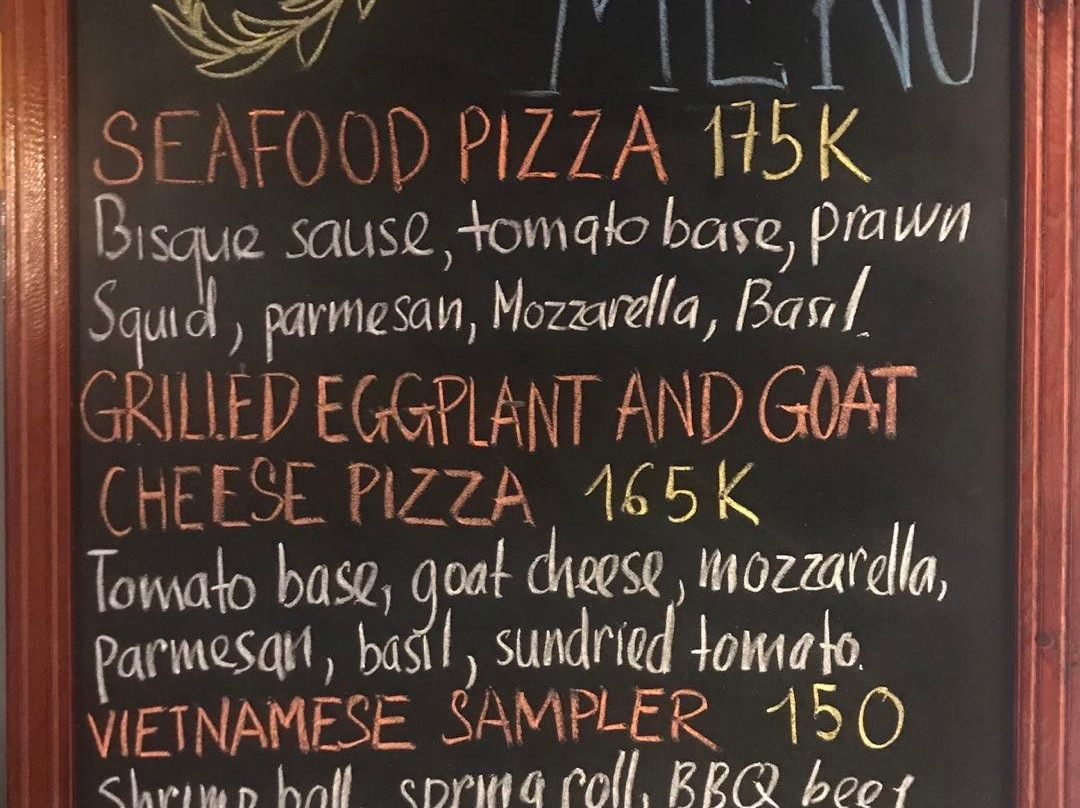 MENU
SEAFOOD PIZZA 175K
Bisque sause, tomato base, prawn
Squid, parmesan, Mozzarella, Basil.
GRILLED EGGPLANT AND GOAT
CHEESE PIZZA 165K
Tomato base, goat cheese, mozzarella,
parmesan, basil, sundried tomato.
VIETNAMESE SAMPLER 150
Shrimp ball, spring roll, BBQ beef